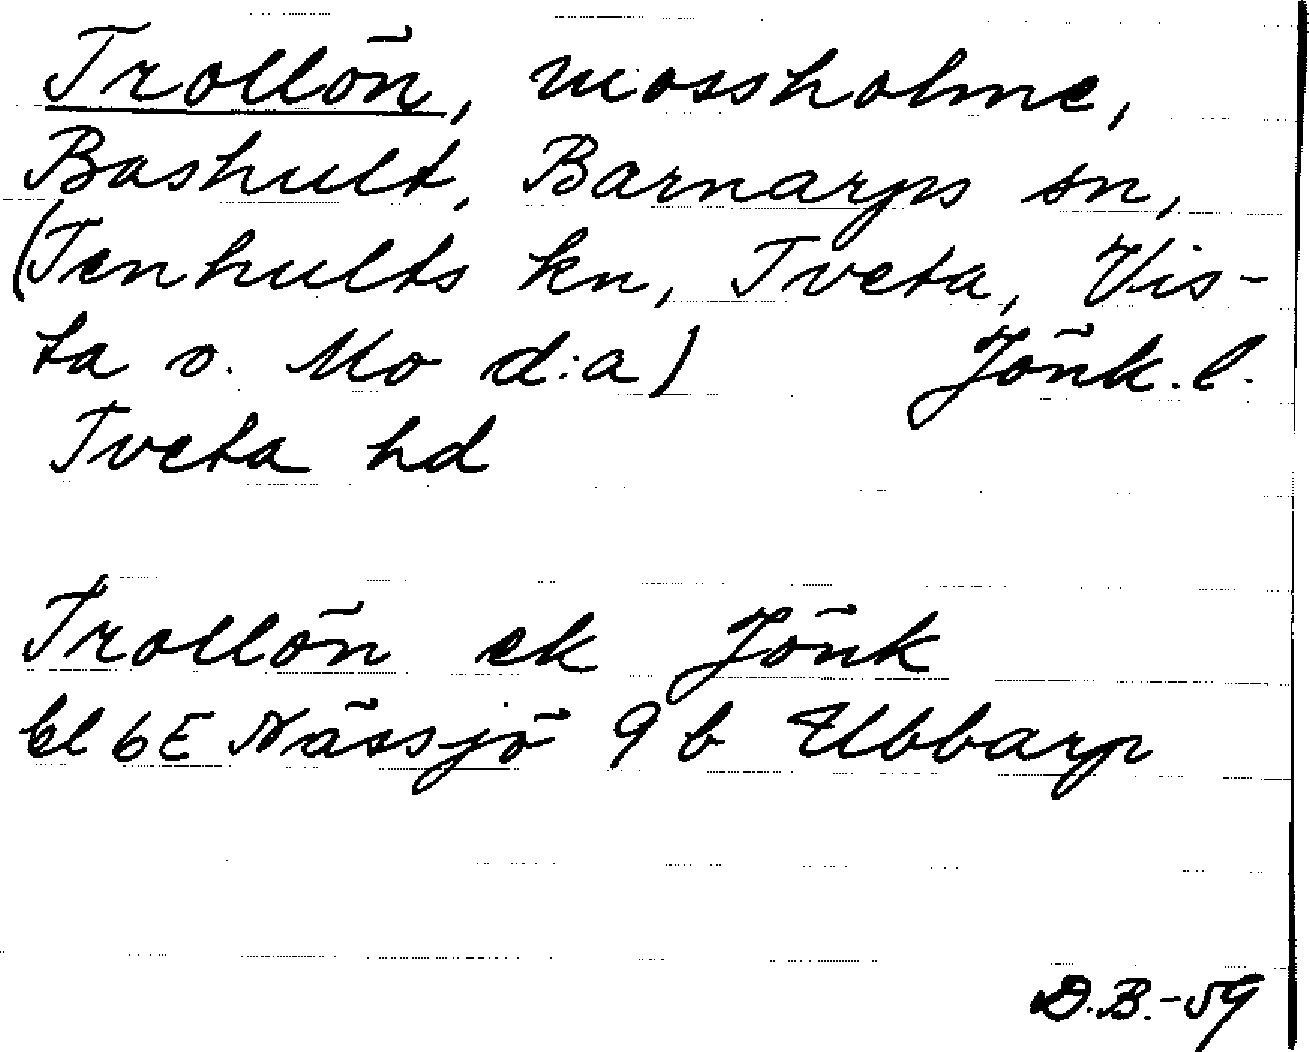 Trollön, mossholme,
Bashult, Barnarps sn,
(Tenhults kn, Tveta, Vis-
ta o. Mo d:a) Jönk. l.
Tveta hd
Trollön ek Jönk
bl 6E Nässjö 9 b Ubbarp
D.B.-59